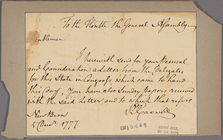 To the Honble the General Assembly
Gentlemen
I herewith send for your Perusal
and Consideration a Letter from the Delegates
for this State in Congress which came to hand
this day. You have also Sundry Papers received
with the said Letter and to which that refers
R Caswell
New Bern
1777